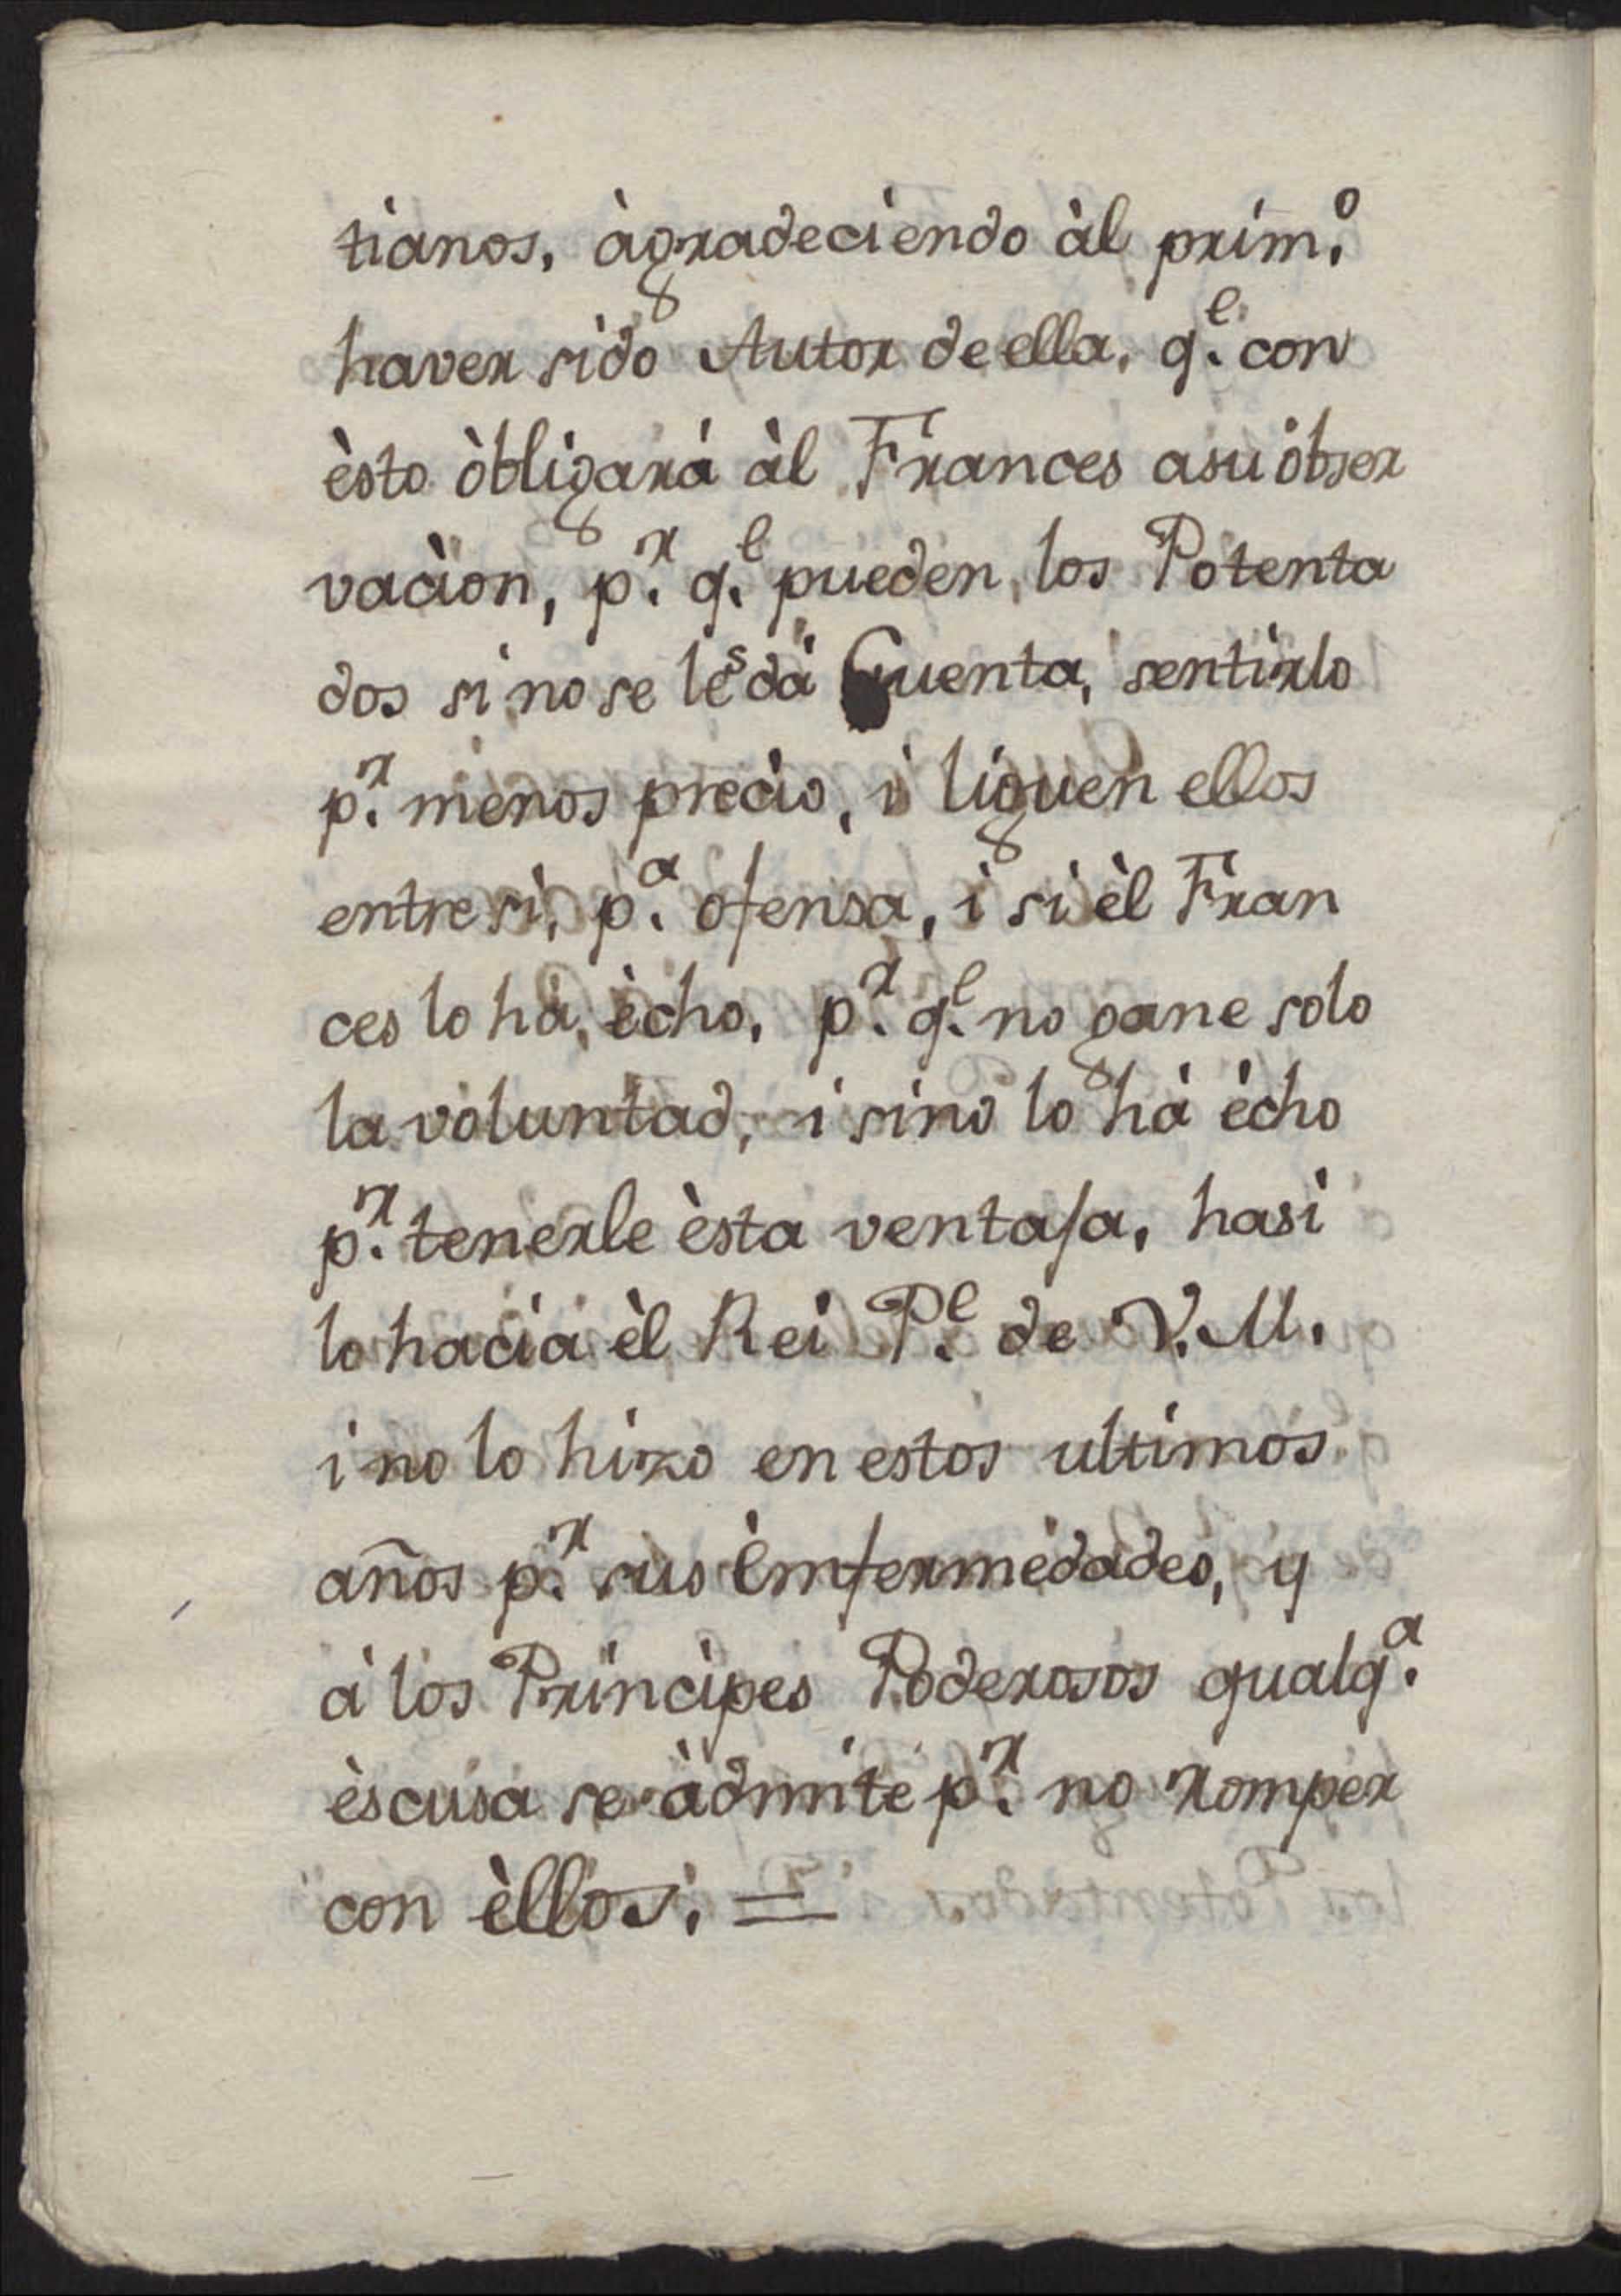 tianos, àgradeciendo àl prim.º
haver sido Autor de ella, q.e con
èsto òbligará àl Frances asu óbser
vaciòn, p.r q.e pueden, los Potenta
dos si no se les dá Cuenta, sentirlo
p.r menos precio, i liguen ellos
entre si, p.a ofensa, i si èl Fran
ces lo há, ècho, p.r q.e no gane solo
la voluntad, i sino lo há écho
p.r tenerle èsta ventaja, hasi
lo hacia èl Rei P.e de V. M.
i no lo hizo en estos ultimos
años p.r sus Emfermedades, y
á los Principes Poderosos qualq.a
èscusa se àdmite p.r no romper
con èllos. =